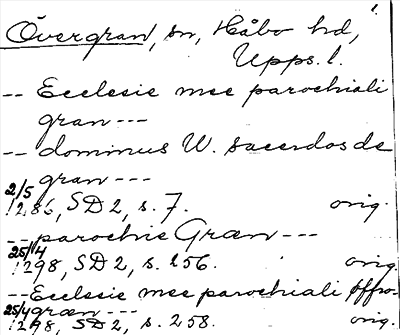 1.
Övergran, sn, Håbo hd,
Upps. l.
-- Ecclesie mee parochiali
gran ---
-- dominus W. sacerdos de
gran ---
2/5
1286, SD 2, s. 7. orig.
-- parochie Græn ---
25/4
1298, SD 2, s. 256. orig.
-- Ecclesie mee parochiali
græn ---
25/4
1298, SD 2, s. 258. orig.